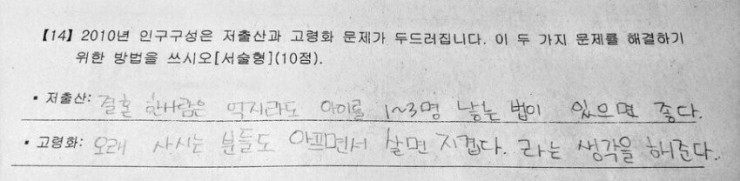 【14】 2010년 인구구성은 저출산과 고령화 문제가 두드러집니다. 이 두 가지 문제를 해결하기
위한 방법을 쓰시오[서술형](10점).
• 저출산: 결혼 한사람은 억지라도 아이를 1~3명 낳는 법이 있으면 좋다.
• 고령화: 오래 사시는 분들도 아프면서 살면 지겹다. 라는 생각을 해준다.